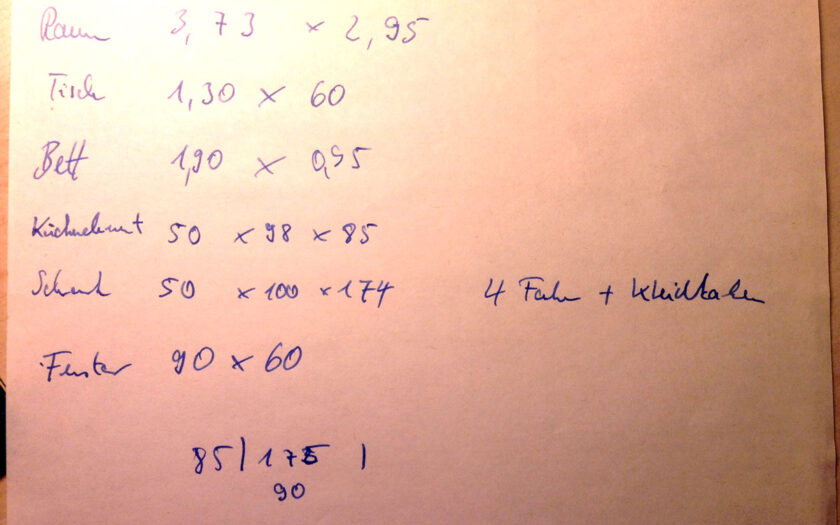 Raum 3,73 x 2,95
Tisch 1,30 x 60
Bett 1,90 x 0,95
50 x 98 x 85
Schrank 50 x 100 x 174 4 +
Fenster 90 x 60
85 | 175 |
90